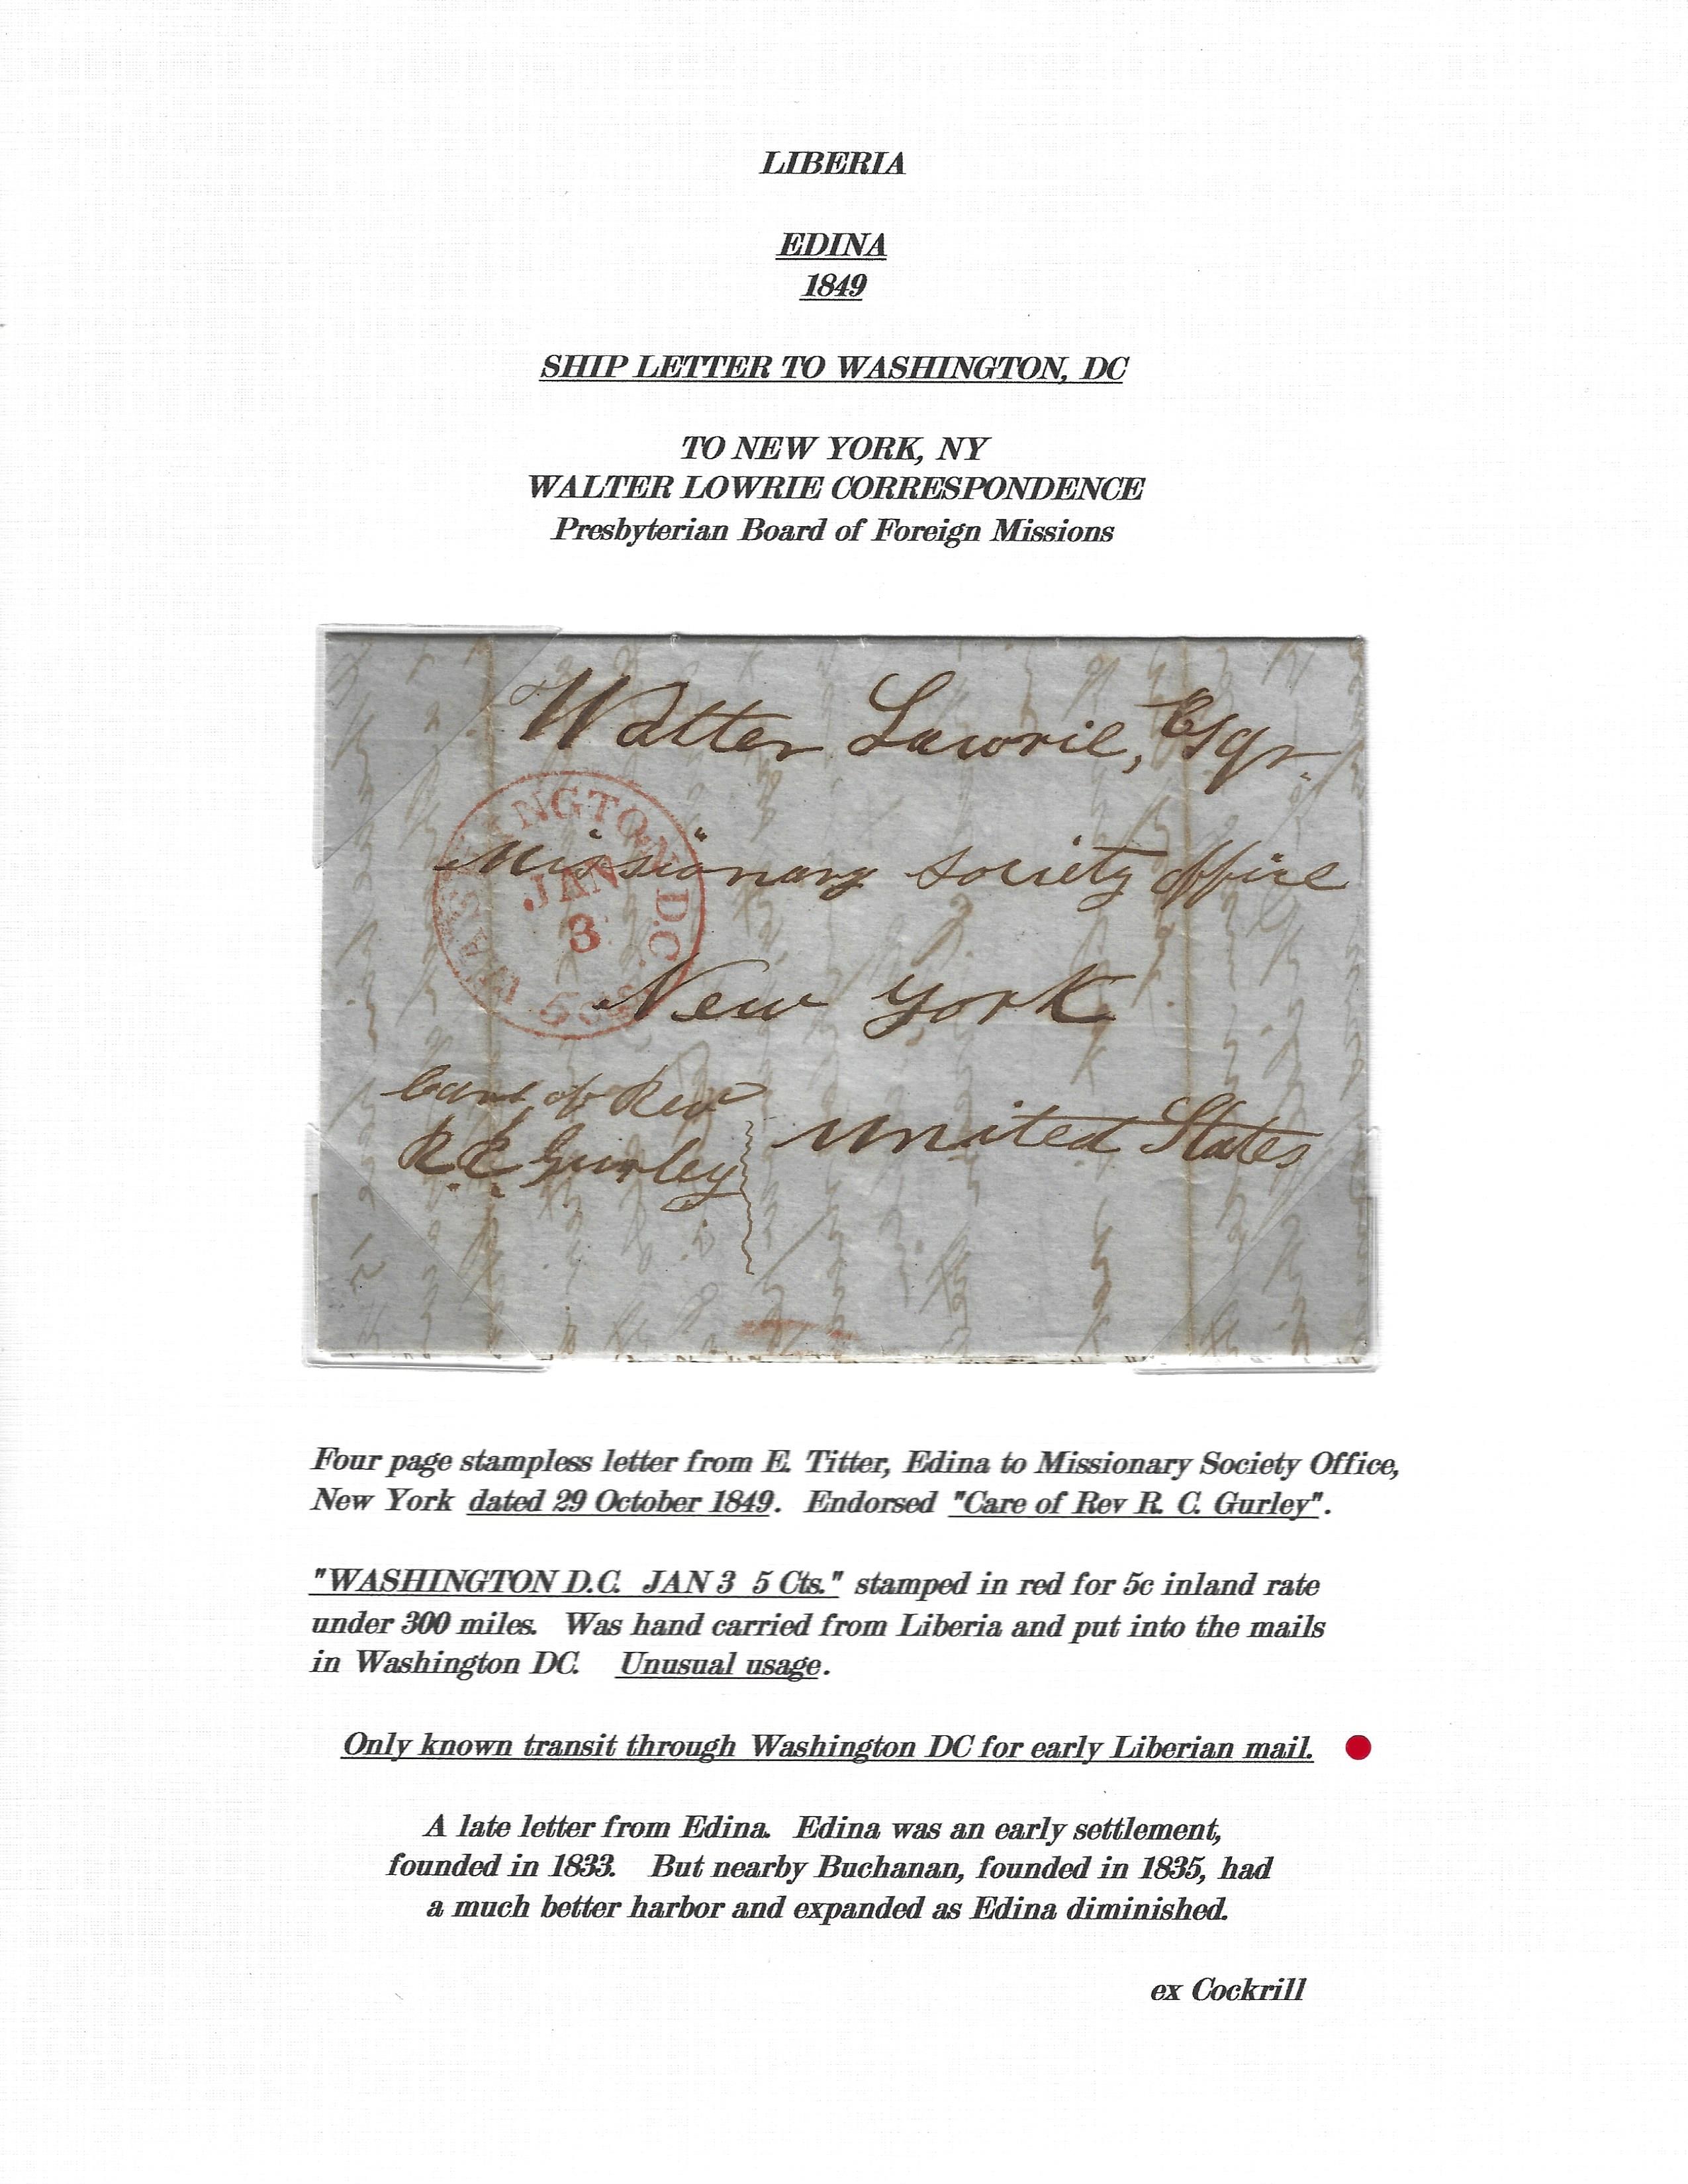 LIBERIA
EDINA
1849
SHIP LETTER TO WASHINGTON, DC
TO NEW YORK, NY
WALTER LOWRIE CORRESPONDENCE
Presbyterian Board of Foreign Missions
Walter Lowrie, Esqr.
WASHINGTON D.C.
JAN
3
5 Cts
Missionary Society Office
New York
Care of Rev
R. R. Gurley
United States
Four page stampless letter from E. Titter, Edina to Missionary Society Office,
New York dated 29 October 1849. Endorsed "Care of Rev R. C. Gurley".
"WASHINGTON D.C. JAN 3 5 Cts." stamped in red for 5c inland rate
under 300 miles. Was hand carried from Liberia and put into the mails
in Washington DC. Unusual usage.
Only known transit through Washington DC for early Liberian mail.
A late letter from Edina. Edina was an early settlement,
founded in 1833. But nearby Buchanan, founded in 1835, had
a much better harbor and expanded as Edina diminished.
ex Cockrill